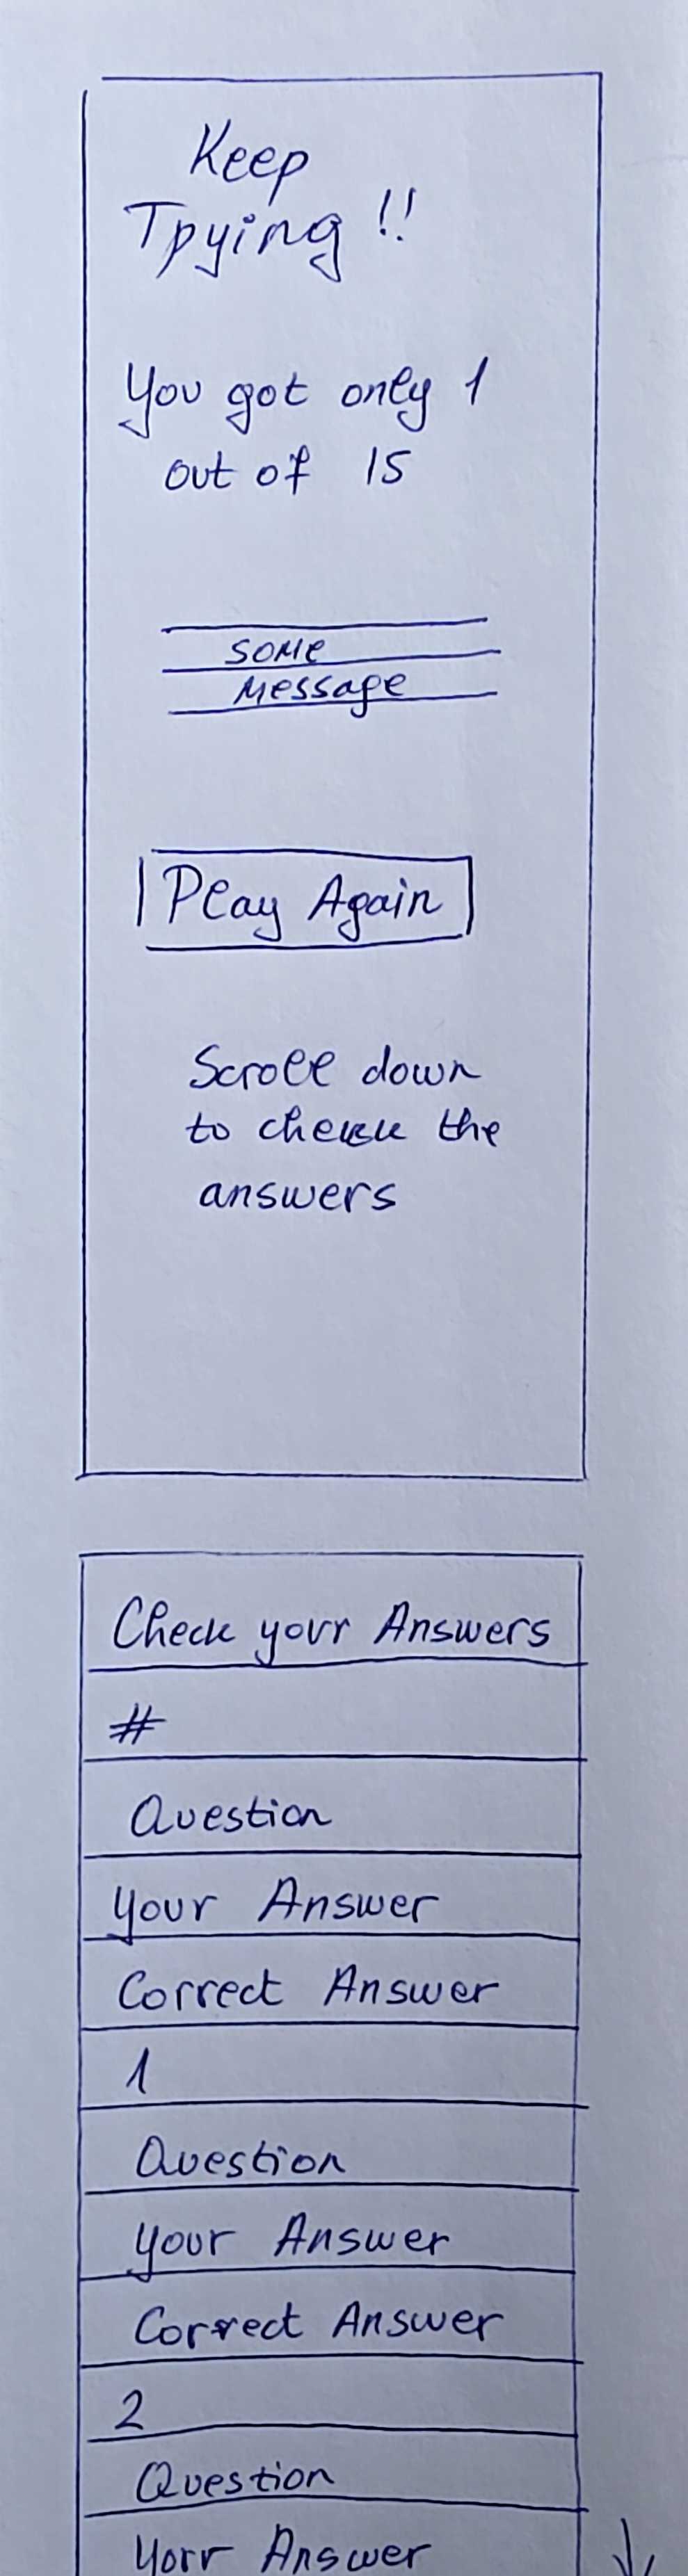 Keep
Tpying !!
You got only 1
out of 15
some
message
Play Again
Scroll down
to check the
answers
Check your Answers
#
Question
Your Answer
Correct Answer
1
Question
Your Answer
Correct Answer
2
Question
Your Answer